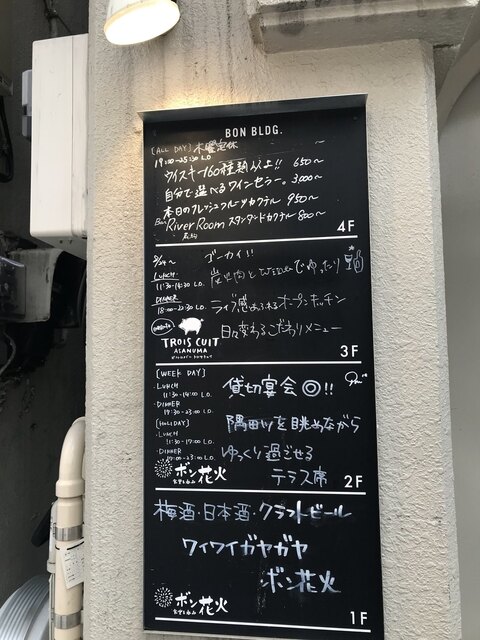 BON BLDG.
[ALL DAY] 木曜定休
19:00-25:30 L.O.
ウイスキー160種類以上!! 650〜
自分で選べるワインセラー。3,000〜
本日のフレッシュフルーツカクテル 950〜
Bar River Room スタンダードカクテル 800〜
4F
ゴーカイ!!
LUNCH
11:30-14:30 L.O.
炭火肉と でゆったり
DINNER
18:00-22:30 L.O.
ライブ感あふれるオープンキッチン
日々変わるこだわりメニュー
TROIS CUIT
ASANUMA
3F
[WEEK DAY]
・LUNCH
11:30-14:00 L.O.
・DINNER
17:30-23:00 L.O.
[HOLIDAY]
・LUNCH
11:30-17:00 L.O.
・DINNER
17:00-23:00 L.O.
貸切宴会◎!!
隅田川を眺めながら
ゆっくり過ごせる
テラス席
ボン花火
2F
梅酒・日本酒・クラフトビール
ワイワイガヤガヤ
ボン花火
ボン花火
1F